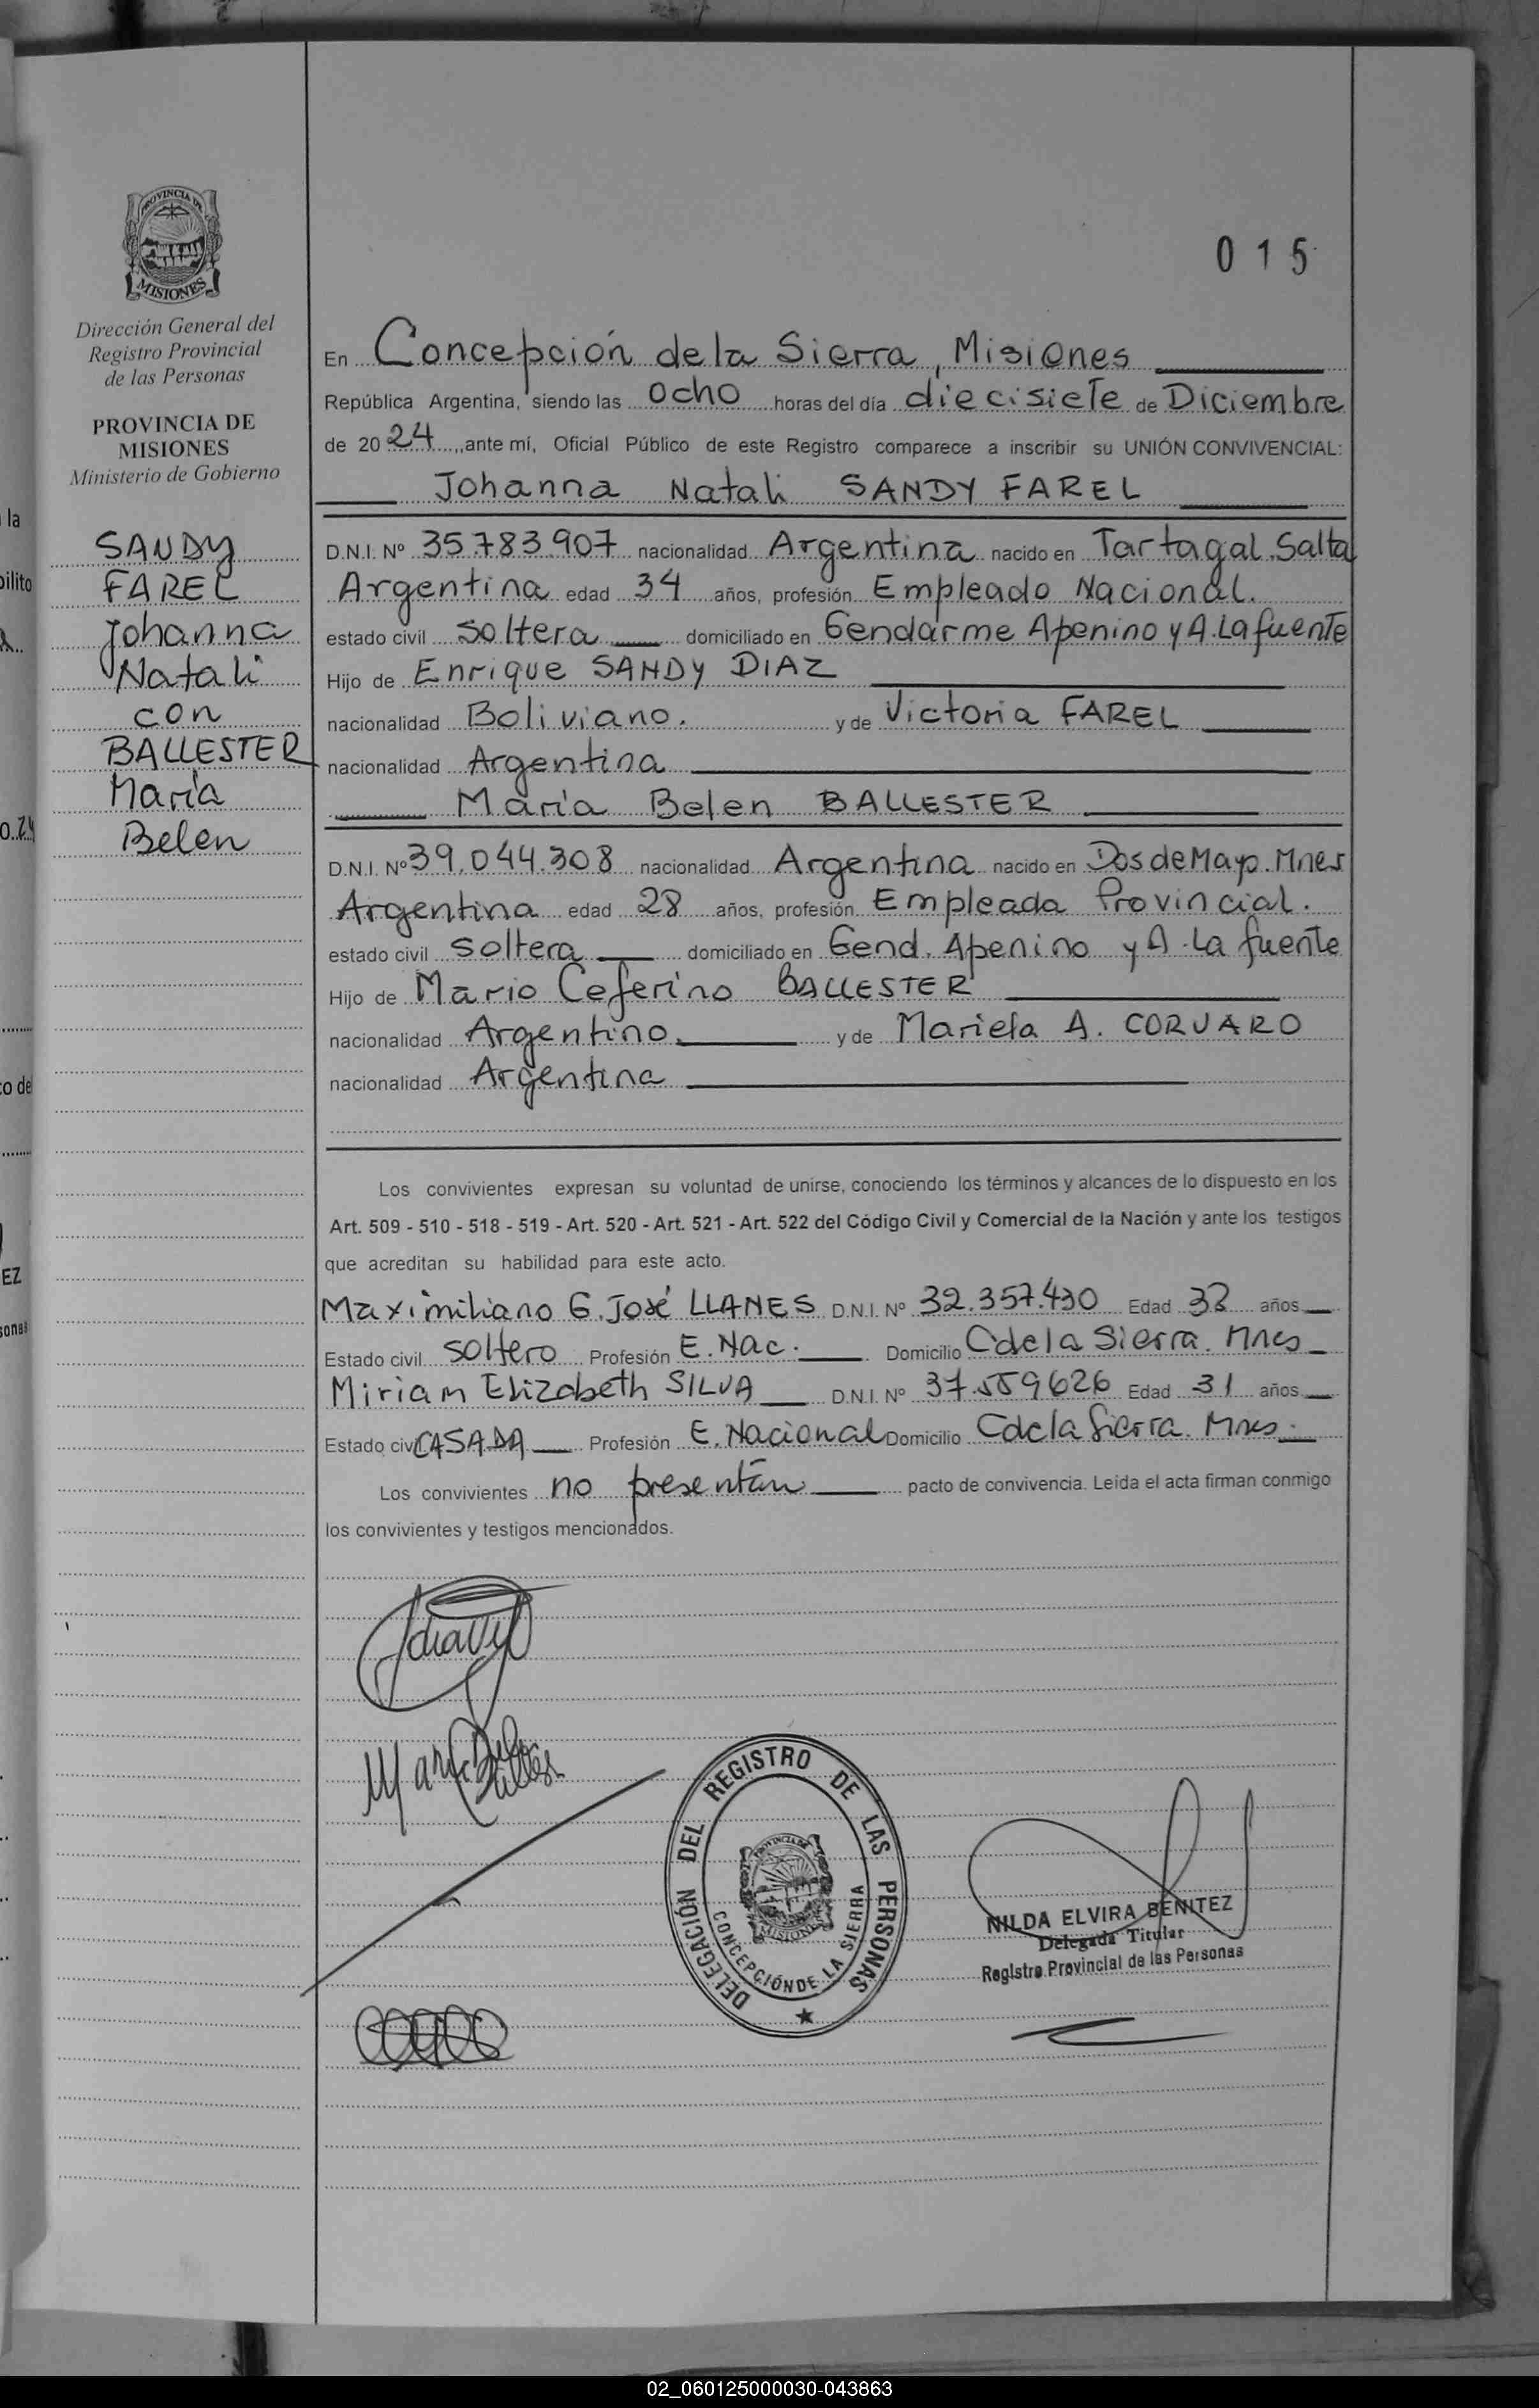 015
PROVINCIA DE
MISIONES
Dirección General del
Registro Provincial
de las Personas
PROVINCIA DE
MISIONES
Ministerio de Gobierno
SANDY
FAREL
Johanna
Natali
con
BALLESTER
María
Belen
En Concepción de la Sierra, Misiones
República Argentina, siendo las ocho horas del día diecisiete de Diciembre
de 2024, ante mí, Oficial Público de este Registro comparece a inscribir su UNIÓN CONVIVENCIAL:
Johanna Natali SANDY FAREL
D.N.I. Nº 35.783.907 nacionalidad Argentina nacido en Tartagal. Salta
Argentina edad 34 años, profesión Empleado Nacional.
estado civil soltera domiciliado en Gendarme Apenino y A. Lafuente
Hijo de Enrique SANDY DIAZ
nacionalidad Boliviano. y de Victoria FAREL
nacionalidad Argentina
María Belen BALLESTER
D.N.I. Nº 39.044.308 nacionalidad Argentina nacido en Dos de Mayo. Mnes
Argentina edad 28 años, profesión Empleada Provincial.
estado civil soltera domiciliado en Gend. Apenino y A. La fuente
Hijo de Mario Ceferino BALLESTER
nacionalidad Argentino. y de Mariela A. CORVARO
nacionalidad Argentina
Los convivientes expresan su voluntad de unirse, conociendo los términos y alcances de lo dispuesto en los
Art. 509 - 510 - 518 - 519 - Art. 520 - Art. 521 - Art. 522 del Código Civil y Comercial de la Nación y ante los testigos
que acreditan su habilidad para este acto.
Maximiliano G. José LLANES D.N.I. Nº 32.357.430 Edad 38 años
Estado civil soltero Profesión E. Nac. Domicilio C de la Sierra. Mnes
Miriam Elizabeth SILVA D.N.I. Nº 37.559626 Edad 31 años
Estado civ CASADA Profesión E. Nacional Domicilio C de la Sierra. Mnes.
Los convivientes no presentan pacto de convivencia. Leída el acta firman conmigo
los convivientes y testigos mencionados.
DELEGACIÓN DEL REGISTRO DE LAS PERSONAS
PROVINCIA DE
MISIONES
CONCEPCIÓN DE LA SIERRA
NILDA ELVIRA BENITEZ
Delegada Titular
Registro Provincial de las Personas
02_060125000030-043863